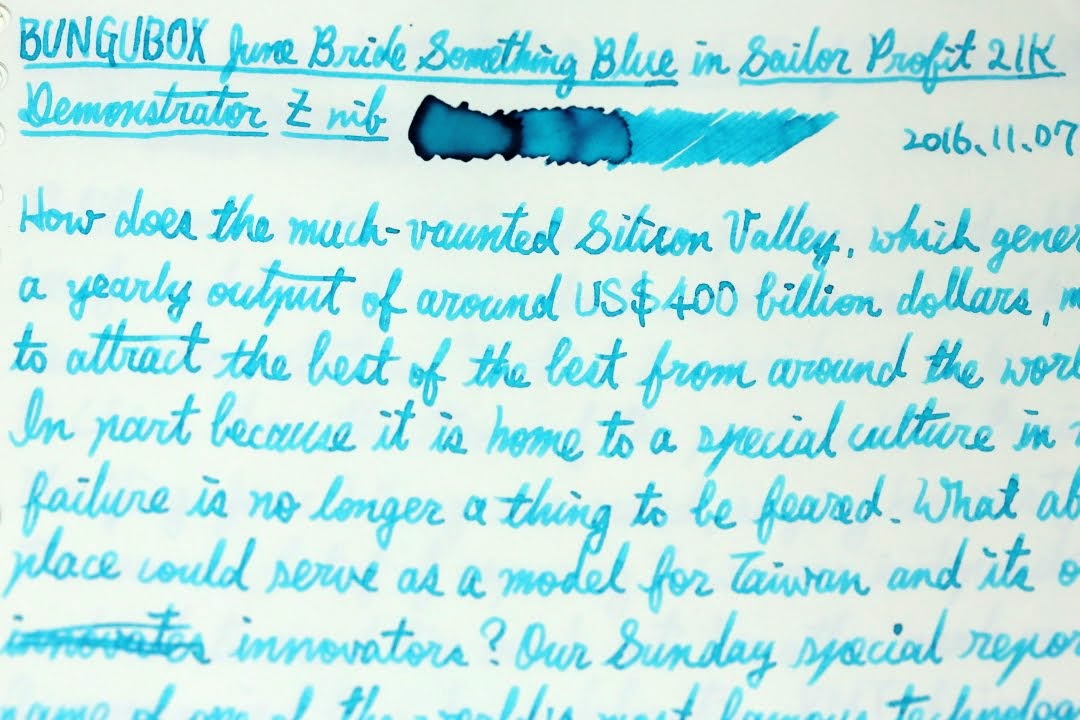 BUNGUBOX June Bride Something Blue in Sailor Profit 21K
Demonstrator Z nib
2016.11.07
How does the much-vaunted Silicon Valley, which gener
a yearly output of around US$400 billion dollars, m
to attract the best of the best from around the worl
In part because it is home to a special culture in
failure is no longer a thing to be feared. What ab
place could serve as a model for Taiwan and its o
innovates innovators? Our Sunday special repor
name of one of the world's most famous technolog